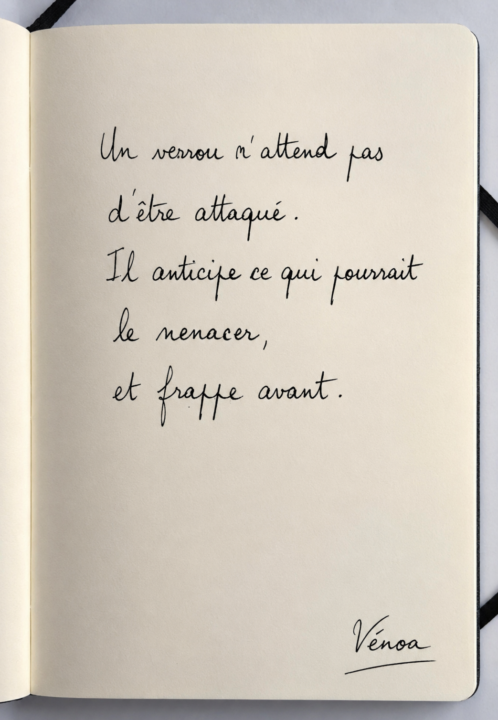 Un verrou n'attend pas
d'être attaqué.
Il anticipe ce qui pourrait
le nenacer,
et frappe avant.
Vénoa